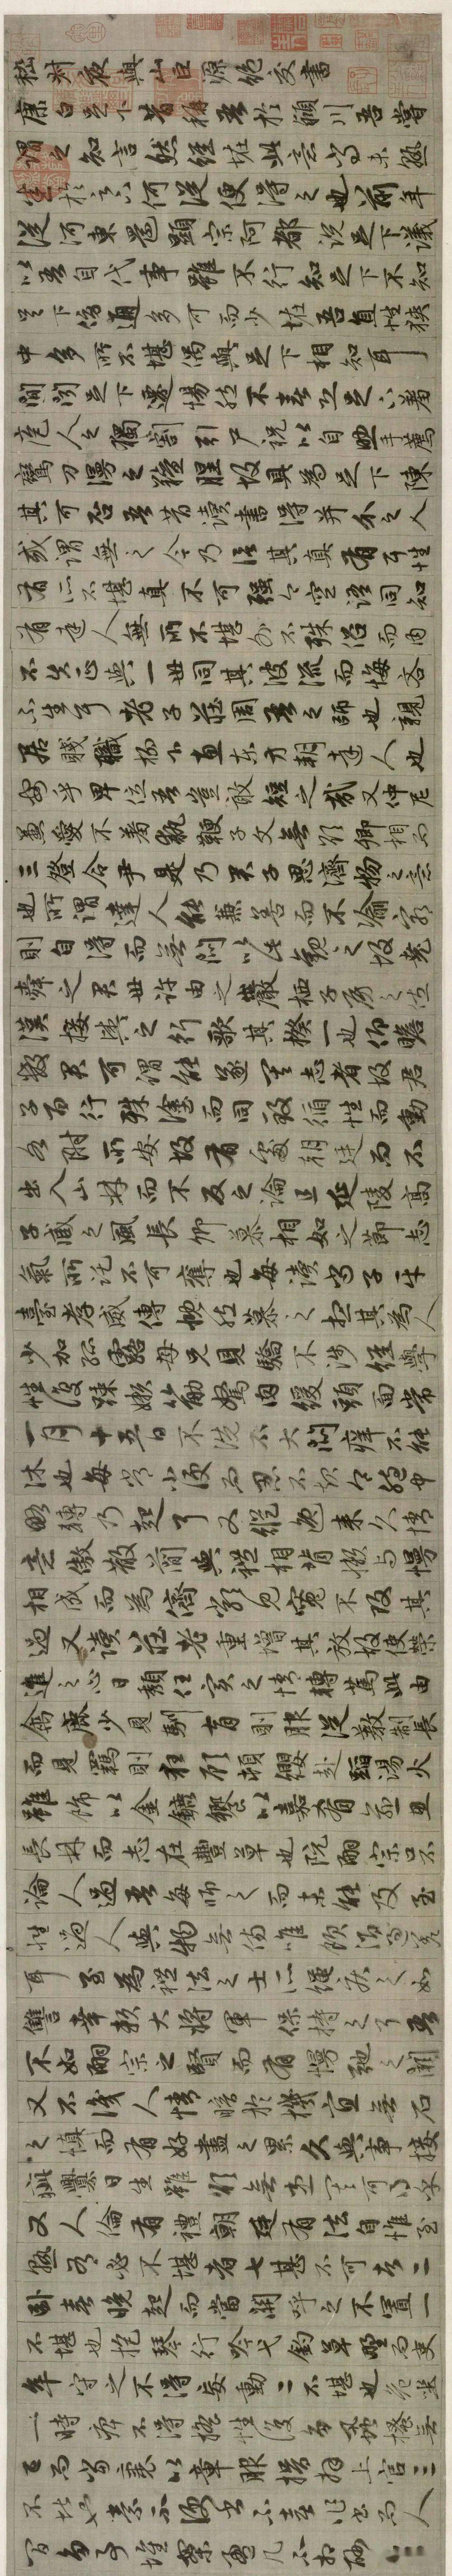 嵇叔夜與山巨源絕交書
康白足下昔稱吾於潁川吾嘗
謂之知言然經怪此意尚未熟
悉於足下何從便得之也前年
從河東還顯宗阿都說足下議
以吾自代事雖不行知足下不知
足下傍通多可而少怪吾直性狹
中多所不堪偶與足下相知耳
間聞足下遷惕然不喜恐足下羞
庖人之獨割引尸祝以自助手薦
鸞刀漫之羶腥故具為足下陳
其可否吾昔讀書得并介之人
或謂無之今乃信其真有耳性
有所不堪真不可強今空語同知
有達人無所不堪外不殊俗而內
不失正與一世同其波流而悔吝
不生耳老子莊周吾之師也親
居賤職柳下惠東方朔達人也
安乎卑位吾豈敢短之哉又仲尼
兼愛不羞執鞭子文無欲卿相而
三登令尹是乃君子思濟物之意
也所謂達人能兼善而不渝窮
則自得而無悶以此觀之故堯
舜之君世許由之巖栖子房之佐
漢接輿之行歌其揆一也仰瞻
數君可謂能遂其志者故君
子百行殊塗而同致循性而動
各附所安故有處朝廷而不
出入山林而不反之論且延陵高
子臧之風長卿慕相如之節志
氣所託不可奪也每讀尚子平
臺孝威傳慨然慕之想其為人
少加孤露母兄見驕不涉經學
性復疎嬾筋駑肉緩頭面常
一月十五日不洗不大悶癢不能
沐也每常小便而忍不起令胞中
略轉乃起耳又縱逸來久情
意傲散簡與禮相背嬾與慢
相成而為儕類見寬不攻其
過又讀莊老重增其放故使榮
進之心日頹任實之情轉篤此由
禽鹿少見馴育則服從教制長
而見羈則狂顧頓纓赴蹈湯火
雖飾以金鑣饗以嘉肴愈思
長林而志在豐草也阮嗣宗口不
論人過吾每師之而未能及至
性過人與物無傷唯飲酒過差
耳至為禮法之士所繩疾之如
讎幸賴大將軍保持之耳吾
不如嗣宗之賢而有慢弛之闕
又不識人情暗於機宜無石
之慎而有好盡之累久與事接
疵釁日生雖欲無患其可得乎
又人倫有禮朝廷有法自惟至
熟有必不堪者七甚不可者二
臥喜晚起而當關呼之不置一
不堪也抱琴行吟弋釣草野而吏
卒守之不得妄動二不堪也危坐
一時痺不得搖性復多虱把搔無
已而當裹以章服揖拜上官三
不堪也素不便書不喜作書而人
間多事堆案盈几不相酬